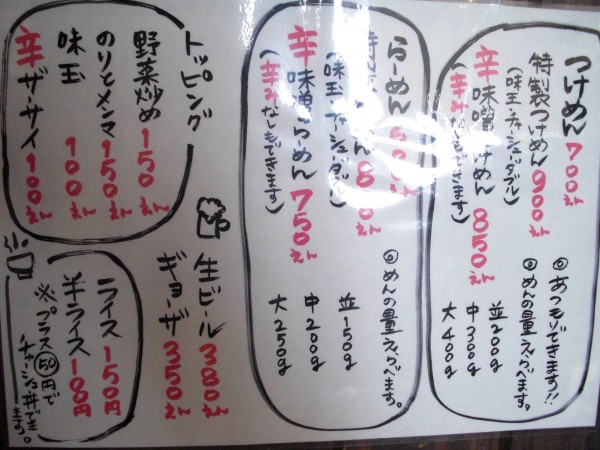 つけめん 700えん
特製つけめん 900えん
(味玉・チャーシューダブル)
辛味噌つけめん 850えん
(辛みなしもできます)
◎あつもりできます!!
◎めんの量えらべます。
並200g
中300g
大400g
らーめん
(味玉・チャーシューダブル)
辛味噌らーめん 750えん
(辛みなしもできます)
◎めんの量えらべます。
並150g
中200g
大250g
トッピング
野菜炒め 150えん
のりとメンマ 150えん
味玉 100えん
辛ザーサイ 100えん
生ビール 380えん
ギョーザ 350えん
ライス 150円
半ライス 100円
※プラス50円で
チャーシュー丼できます。